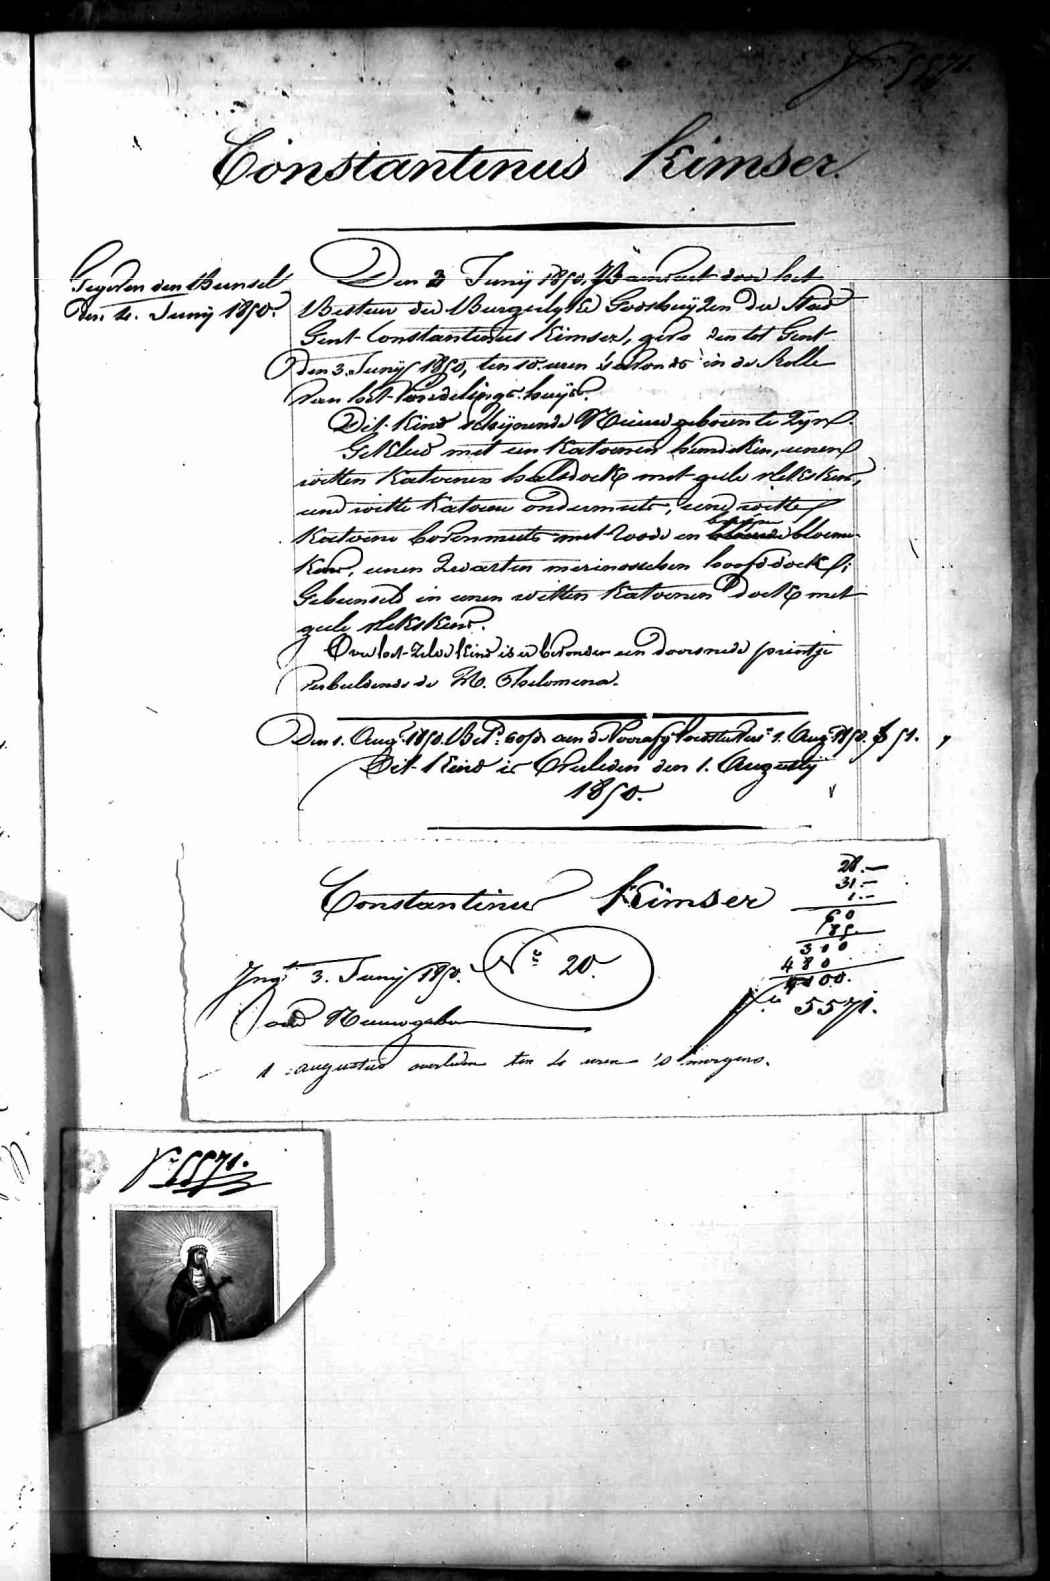 Nr 5571.
Constantinus Kimser.
Gegeven den Bunsel
den 4. Junij 1850.
Den 3 Junij 1850, Aanvaert door het
Bestuur der Burgerlyke Godshuijzen der Stad
Gent Constantinus Kimser, gevonden tot Gent
den 3. Junij 1850, ten 10 uren 's avonds in de Rolle
van het Vondelings-huijs.
Dit Kind schijnende Nieuwgeboren te zijn.
Gekleed met een Katoenen hemdeken, eenen
witten Katoenen halsdoek met gele vlekskens,
eene witte Katoene ondermuts, eene witte
Katoene bovenmuts met roode en bruijne blaauwe bloem-
kens, eenen Zwarten merinosschen hoofddoek;
Gebunseld in eenen witten Katoenen doek met
gele vlekskens.
Over het zelve Kind is er bevonden een doorsnede printje
verbeeldende de H. Philomena.
Den 1. Aug. 1850. Bet. aen de 1. Aug. 1850. f 51.
Dit Kind is Overleden den 1. Augustij
1850.
Constantinus Kimser
28.—
31.—
1.—
60
185
310
480
4100.
Nr 5571.
Ingt 3. Junij 1850. No 20.
oud Nieuwgebo
1 augustus overleden ten 4 uren 's morgens.
Nr 5571.